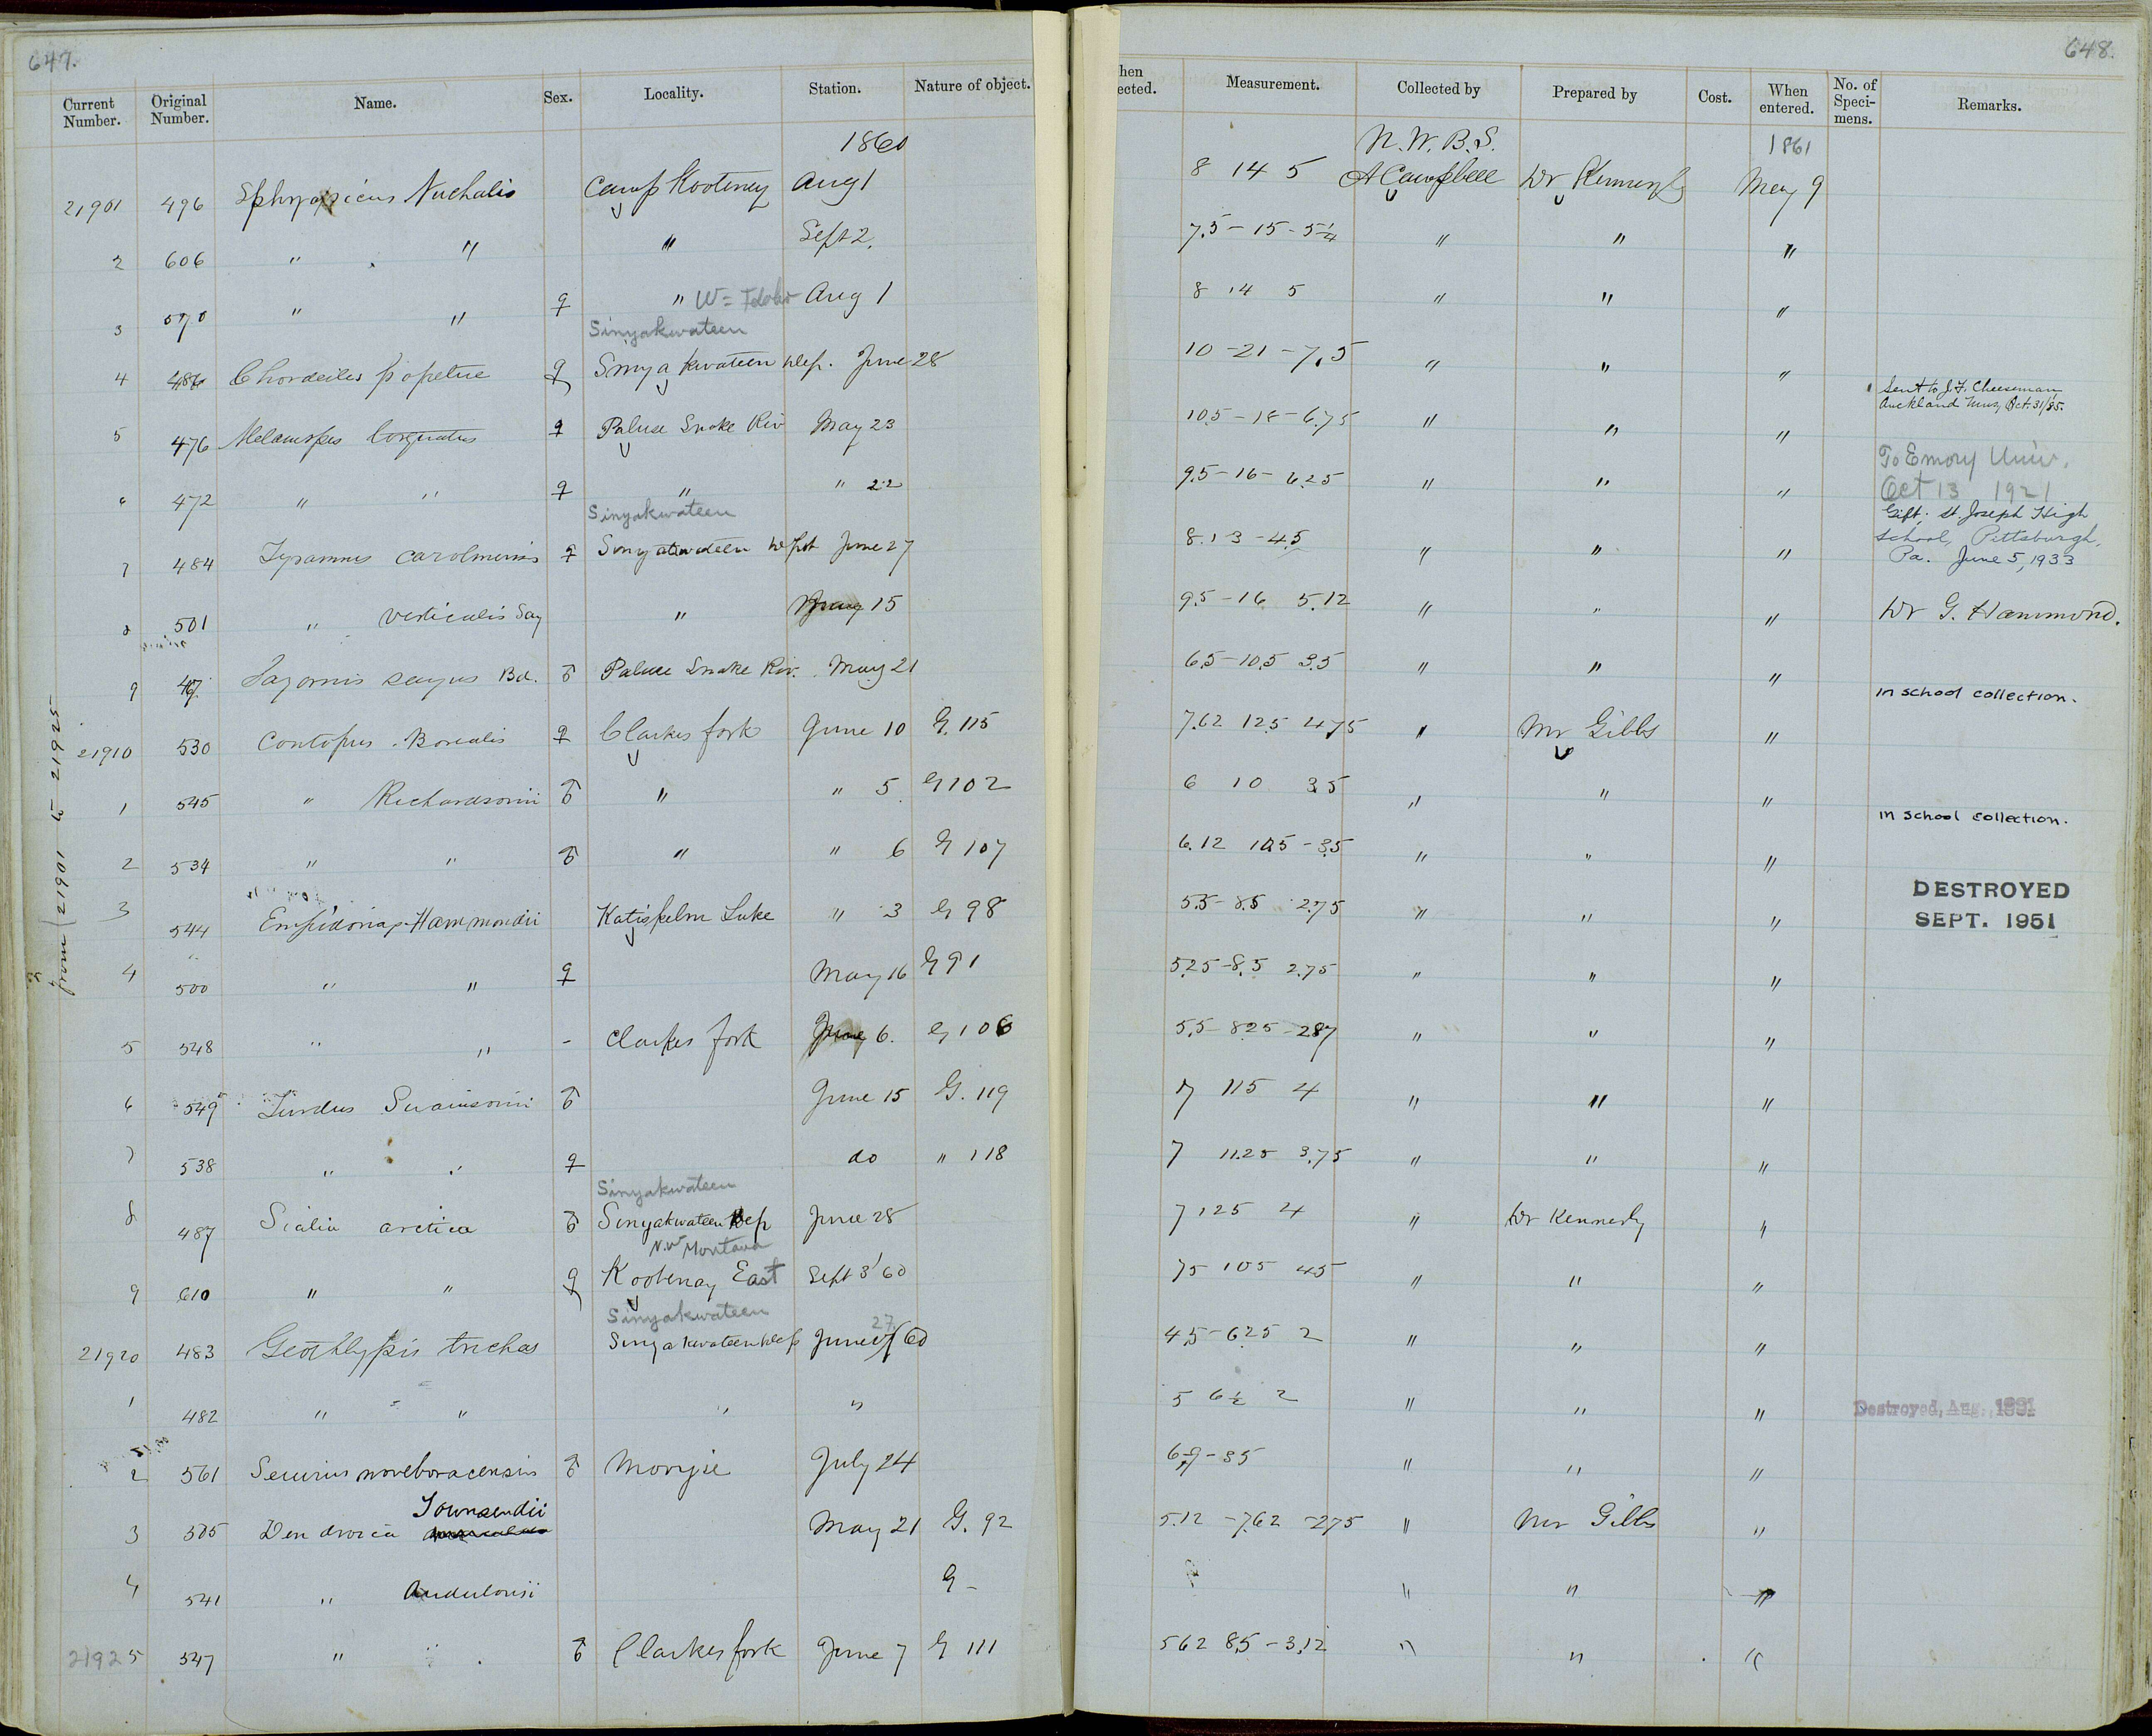 647.
648.
Current Number. Original Number. Name. Sex. Locality. Station. Nature of object.
hen ected. Measurement. Collected by Prepared by Cost. When entered. No. of Speci- mens. Remarks.
1860 N. W. B. S. 1861
21901 496 Sphyrapicus Nuchalis Camp Kooteney Aug 1 8 14 5 A Campbell Dr Kennerly May 9
2 606 " " " Sept 2. 7.5 - 15 - 5¼ " " "
3 570 " " ♀ " W = Idaho Aug 1 8 14 5 " " "
Sinyakwateen
4 486 Chordeiles popetue ♀ Sinyakwateen Dep. June 28 10 - 21 - 7.5 " " "
Sent to J. F. Cheeseman
Auckland Mus, Oct. 31/85.
5 476 Melanerpes torquatus ♀ Paluse Snake Riv May 23 10.5 - 18 - 6.75 " " "
To Emory Univ.
6 472 " " ♀ " " 22 9.5 - 16 - 6.25 " " " Oct 13 1921
Sinyakwateen
Gift; St. Joseph High
School, Pittsburgh,
7 484 Tyrannus carolinensis ♀ Sinyakwateen Depot June 27 8.13 - 4.5 " " " Pa. June 5, 1933
8 501 " verticalis Say " May 15 9.5 - 16 5.12 " " " Dr G. Hammond.
9 Sayornis sayus Bd. ♂ Paluse Snake Riv. May 21 6.5 - 10.5 3.5 " " "
in school collection.
21910 530 Contopus Borealis ♀ Clarkes fork June 10 G. 115 7.62 12.5 4.75 " Mr Gibbs "
1 545 " Richardsonii ♂ " " 5 G 102 6 10 3.5 " " "
in school collection.
2 534 " " ♂ " " 6 G 107 6.12 10.5 - 3.5 " " "
3 544 Empidonax Hammondii Katispelm Lake " 3 G 98 5.5 - 8.5 2.75 " " "
DESTROYED
SEPT. 1951
4 500 " " ♀ May 16 G 91 5.25 - 8.5 2.75 " " "
5 548 " " - Clarkes fork June 6. G 106 5.5 - 8.25 - 2.87 " " "
6 549 Turdus Swainsonii ♂ June 15 G. 119 7 11.5 4 " " "
7 538 " " ♀ do " 118 7 11.25 3.75 " " "
Sinyakwateen
8 487 Sialia arctica ♂ Sinyakwateen Dep June 28 7 12.5 4 " Dr Kennerly "
N.W Montana
9 610 " " ♀ Kootenay East Sept 3 '60 7.5 10.5 4.5 " " "
Sinyakwateen
27
21920 483 Geothlypis trichas Sinyakwateen Dep June /60 4.5 - 6.25 2 " " "
1 482 " " " " 5 6½ 2 " " " Destroyed, Aug. 1881
2 561 Seiurus noveboracensis ♂ Mooyie July 24 6 - 9 - 3.5 " " "
Townsendii
3 505 Dendroica May 21 G. 92 5.12 - 7.62 - 2.75 " Mr Gibbs "
4 541 " Audubonii G - " " "
21925 547 " " ♂ Clarkes fork June 7 G 111 5.62 8.5 - 3.12 " " "
from 21901 to 21925